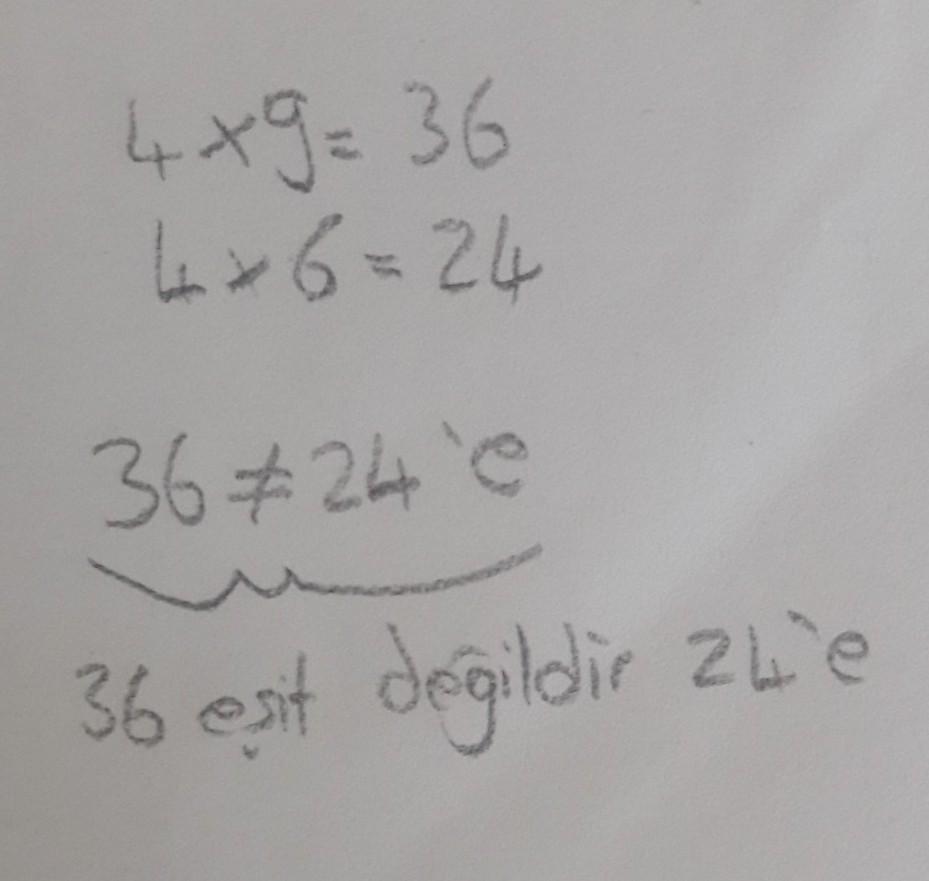 4×9= 36
4×6=24
36≠24'e
36 eşit değildir 24'e